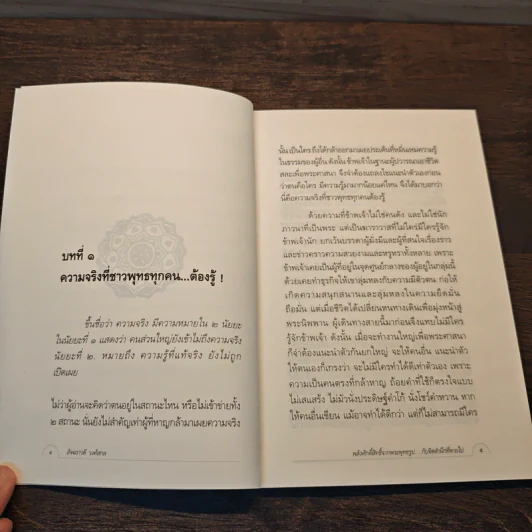 บทที่ ๑
ความจริงที่ชาวพุทธทุกคน...ต้องรู้ !
ขึ้นชื่อว่า ความจริง มีความหมายใน ๒ นัยยะ
ในนัยยะที่ ๑ แสดงว่า คนส่วนใหญ่ยังเข้าไม่ถึงความจริง
นัยยะที่ ๒. หมายถึง ความรู้ที่แท้จริง ยังไม่ถูก
เปิดเผย
ไม่ว่าผู้อ่านจะคิดว่าตนอยู่ในสถานะไหน หรือไม่เข้าข่ายทั้ง
๒ สถานะ นั่นยังไม่สำคัญเท่าผู้ที่หาญกล้ามาเผยความจริง
นั้น เป็นใคร ถึงได้กล้าออกมาเผยประเด็นที่หมิ่นเหม่ความรู้
ในธรรมของผู้อื่น ดังนั้น ข้าพเจ้าในฐานะผู้ปวารณาเอาชีวิต
สละเพื่อพระศาสนา จึงจำต้องแถลงไขแนะนำตัวเองก่อน
ว่าตนคือใคร มีความรู้มามากน้อยแค่ไหน จึงได้มาบอกว่า
นี่คือความจริงที่ชาวพุทธทุกคนต้องรู้
ด้วยความที่ข้าพเจ้าไม่ใช่คนดัง และไม่ใช่นัก
ภาวนาที่เป็นพระ แต่เป็นฆราวาสที่ไม่ใคร่มีใครรู้จัก
ข้าพเจ้านัก ยกเว้นบรรดาผู้มั่งมีและผู้ที่สนใจเรื่องราว
และข่าวคราวความสวยงามและหรูหราทั้งหลาย เพราะ
ข้าพเจ้าเคยเป็นผู้ที่อยู่ในจุดศูนย์กลางของผู้อยู่ในกลุ่มนี้
ด้วยเคยทำธุรกิจให้เขาลุ่มหลงกับความมีตัวตน ก่อให้
เกิดความสนุกสนานและลุ่มหลงในความยึดมั่น
ถือมั่น แต่เมื่อชีวิตได้เปลี่ยนหนทางเดินเพื่อมุ่งหน้าสู่
พระนิพพาน ผู้เดินทางสายนี้มาก่อนจึงแทบไม่มีใคร
รู้จักข้าพเจ้า ดังนั้น เมื่อจะทำงานใหญ่เพื่อพระศาสนา
ก็จำต้องแนะนำตัวกันยกใหญ่ จะให้คนอื่น แนะนำตัว
ให้ตนเองก็เกรงว่า จะไม่มีใครทำได้ดีเท่าตัวเอง เพราะ
ความเป็นคนตรงที่กล้าหาญ ถ้อยคำที่ใช้ก็ตรงใจแบบ
ไม่เสแสร้ง ไม่มัวนั่งประดิษฐ์คำให้ นั่งไขว่คำหวาน หาก
ให้คนอื่นเขียน แม้อาจทำได้ดีกว่า แต่ก็ไม่สามารถมีใคร